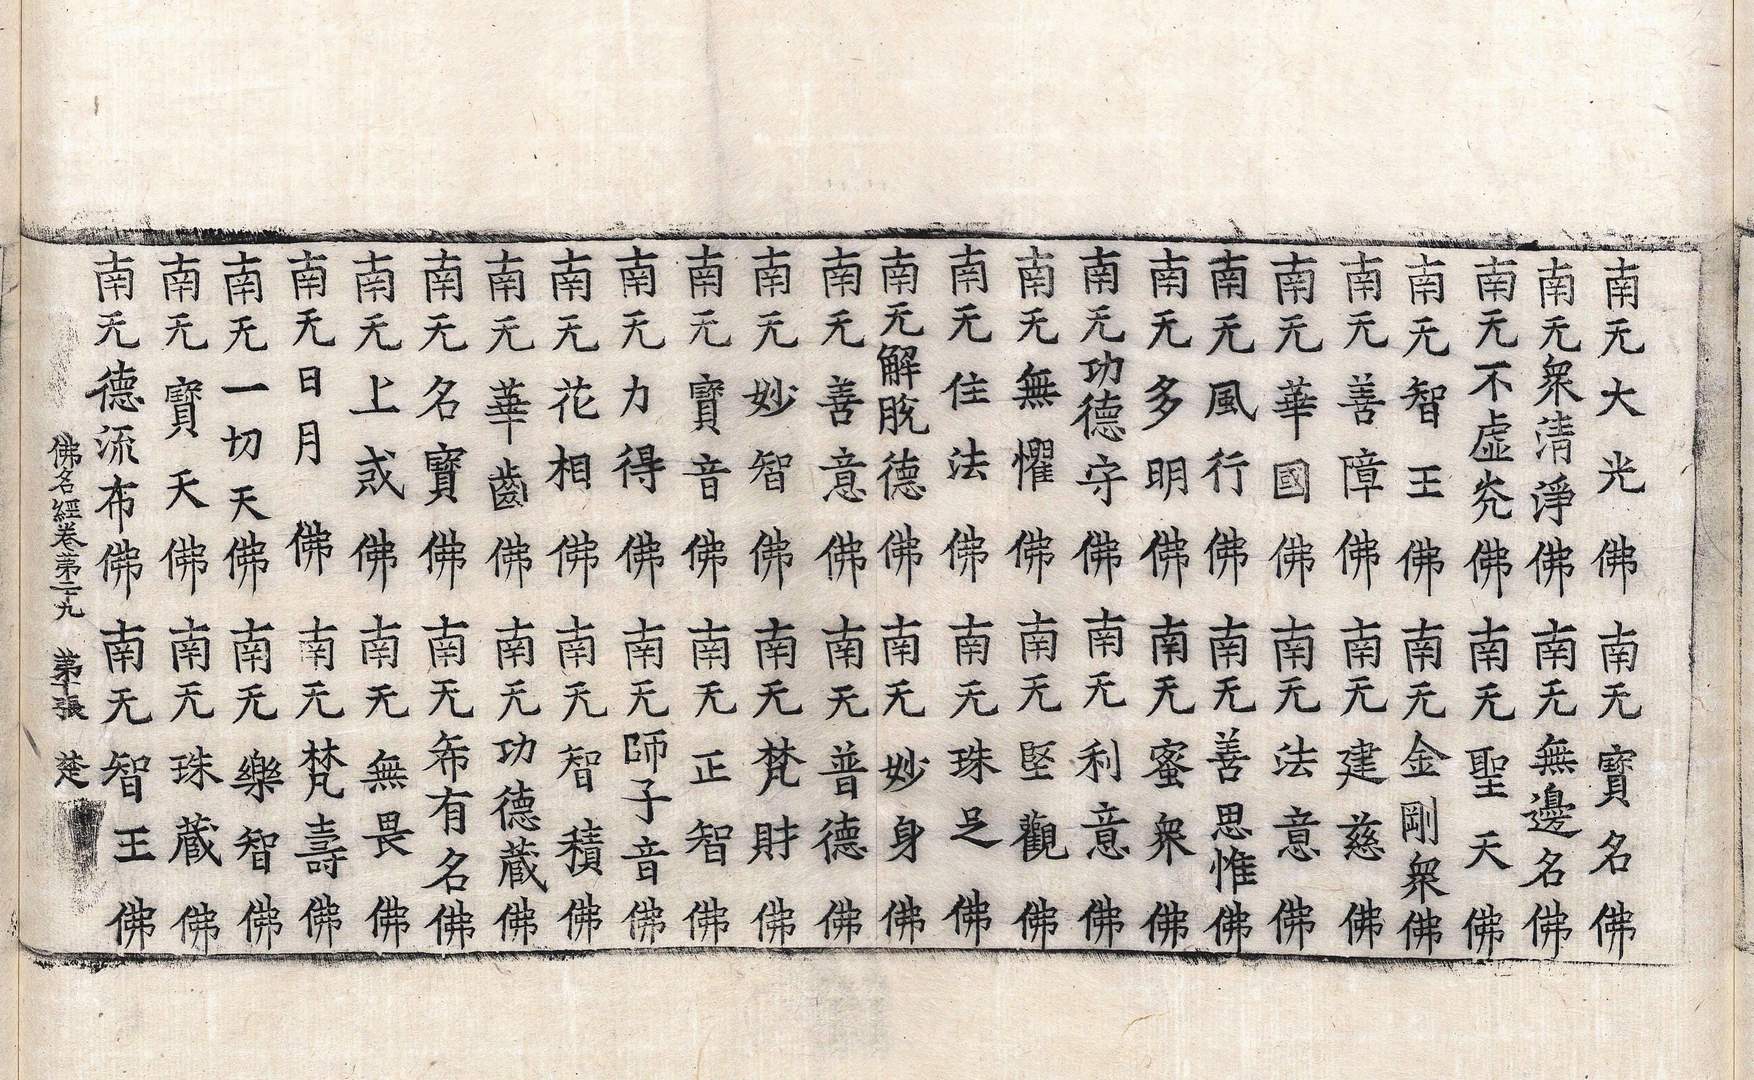 南无大光佛 南无寶名佛
南无衆清淨佛 南无無邊名佛
南无不虛光佛 南无聖天佛
南无智王佛 南无金剛衆佛
南无善障佛 南无建慈佛
南无華國佛 南无法意佛
南无風行佛 南无善思惟佛
南无多明佛 南无蜜衆佛
南无功德守佛 南无利意佛
南无無懼佛 南无堅觀佛
南无住法佛 南无珠足佛
南无解脫德佛 南无妙身佛
南无善意佛 南无普德佛
南无妙智佛 南无梵財佛
南无寶音佛 南无正智佛
南无力得佛 南无師子音佛
南无花相佛 南无智積佛
南无華齒佛 南无功德藏佛
南无名寶佛 南无希有名佛
南无上戒佛 南无無畏佛
南无日月佛 南无梵壽佛
南无一切天佛 南无樂智佛
南无寶天佛 南无珠藏佛
南无德流布佛 南无智王佛
佛名經卷第二十九 第十張 楚